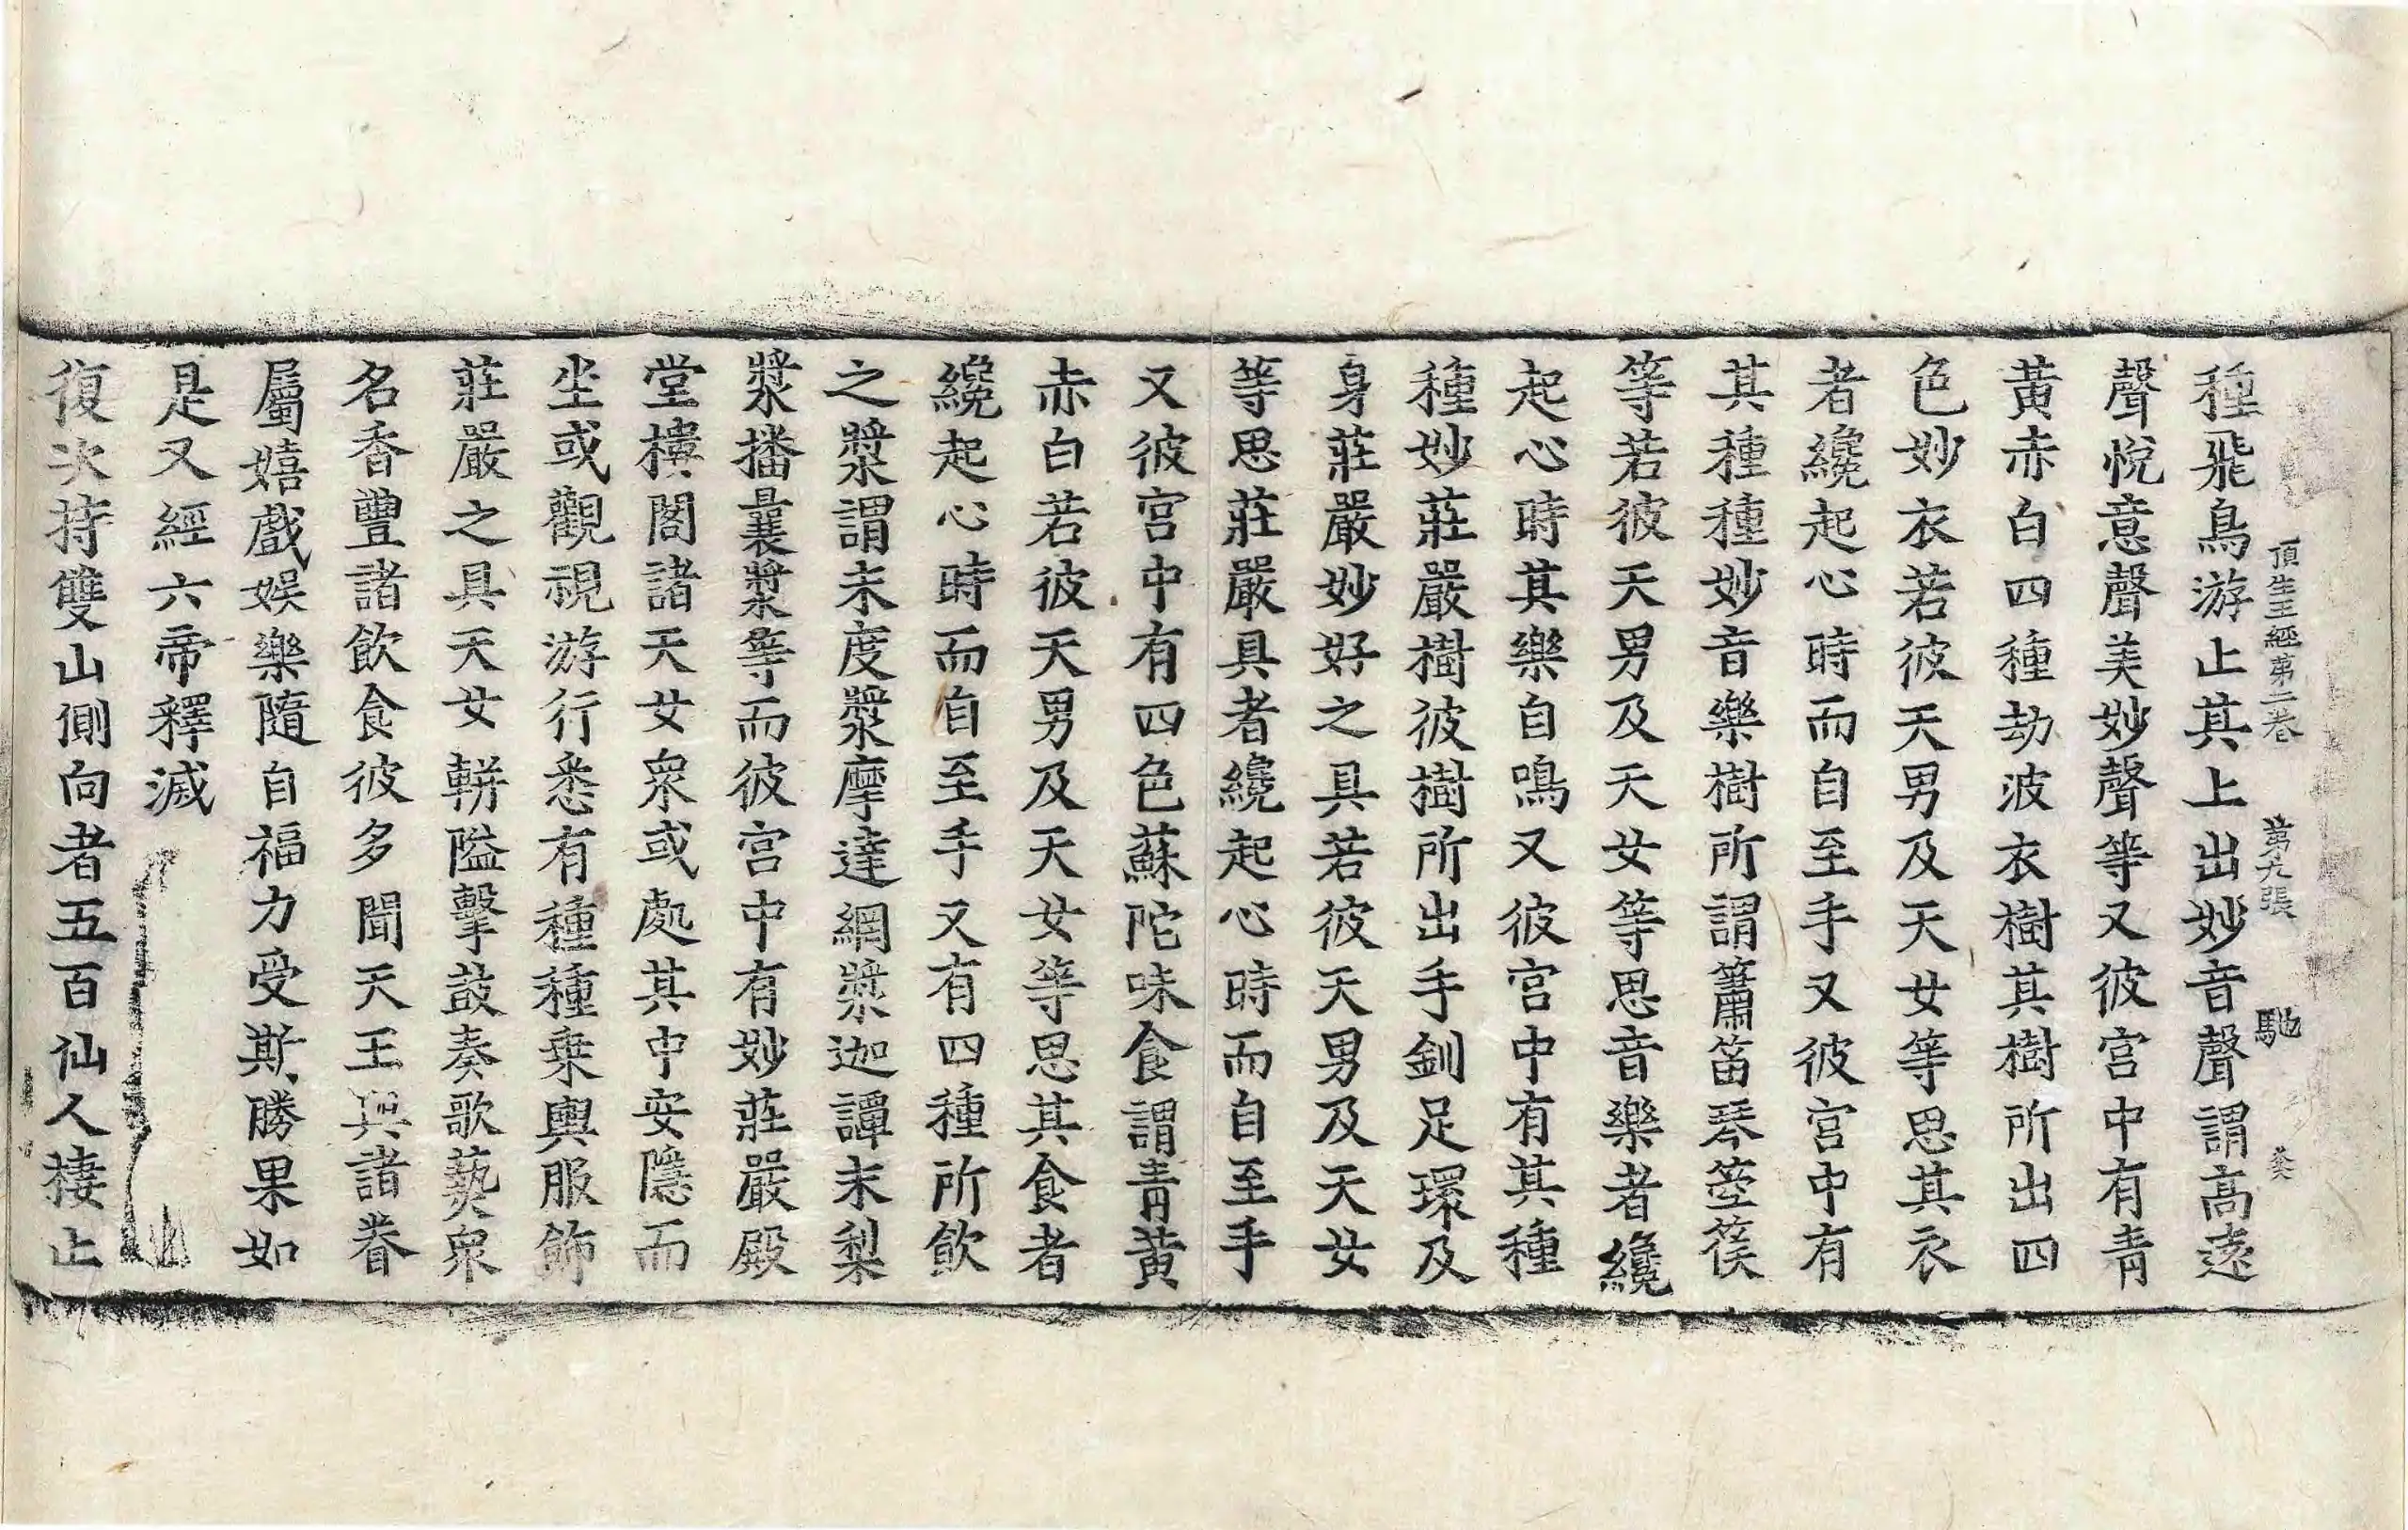 頂生王經第二卷　第九張　馳
種飛鳥游止其上出妙音聲謂高遠
聲悅意聲美妙聲等又彼宮中有青
黃赤白四種劫波衣樹其樹所出四
色妙衣若彼天男及天女等思其衣
者纔起心時而自至手又彼宮中有
其種種妙音樂樹所謂簫笛琴箜篌
等若彼天男及天女等思音樂者纔
起心時其樂自鳴又彼宮中有其種
種妙莊嚴樹彼樹所出手釧足環及
身莊嚴妙好之具若彼天男及天女
等思莊嚴具者纔起心時而自至手
又彼宮中有四色蘇陀味食謂青黃
赤白若彼天男及天女等思其食者
纔起心時而自至手又有四種所飲
之漿謂末度漿摩達網漿迦譚末梨
漿播曩漿等而彼宮中有妙莊嚴殿
堂樓閣諸天女眾或處其中安隱而
坐或觀視游行悉有種種乘輿服飾
莊嚴之具天女軿隘擊鼓奏歌藝眾
名香豐諸飲食彼多聞天王與諸眷
屬嬉戲娛樂隨自福力受斯勝果如
是又經六帝釋滅
復次持雙山側向者五百仙人棲止